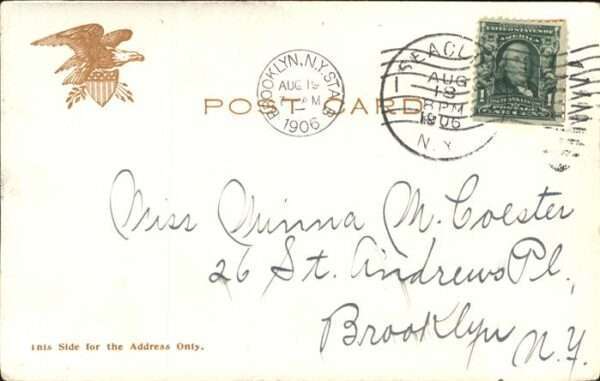 BROOKLYN, N.Y. STA. B
AUG 19
PM
1906
SEACL
AUG
18
8 PM
1906
N.Y.
UNITED STATES OF
1
POST CARD
Miss Minna M. Coester
26 St. Andrews Pl.,
Brooklyn
N.Y.
This Side for the Address Only.